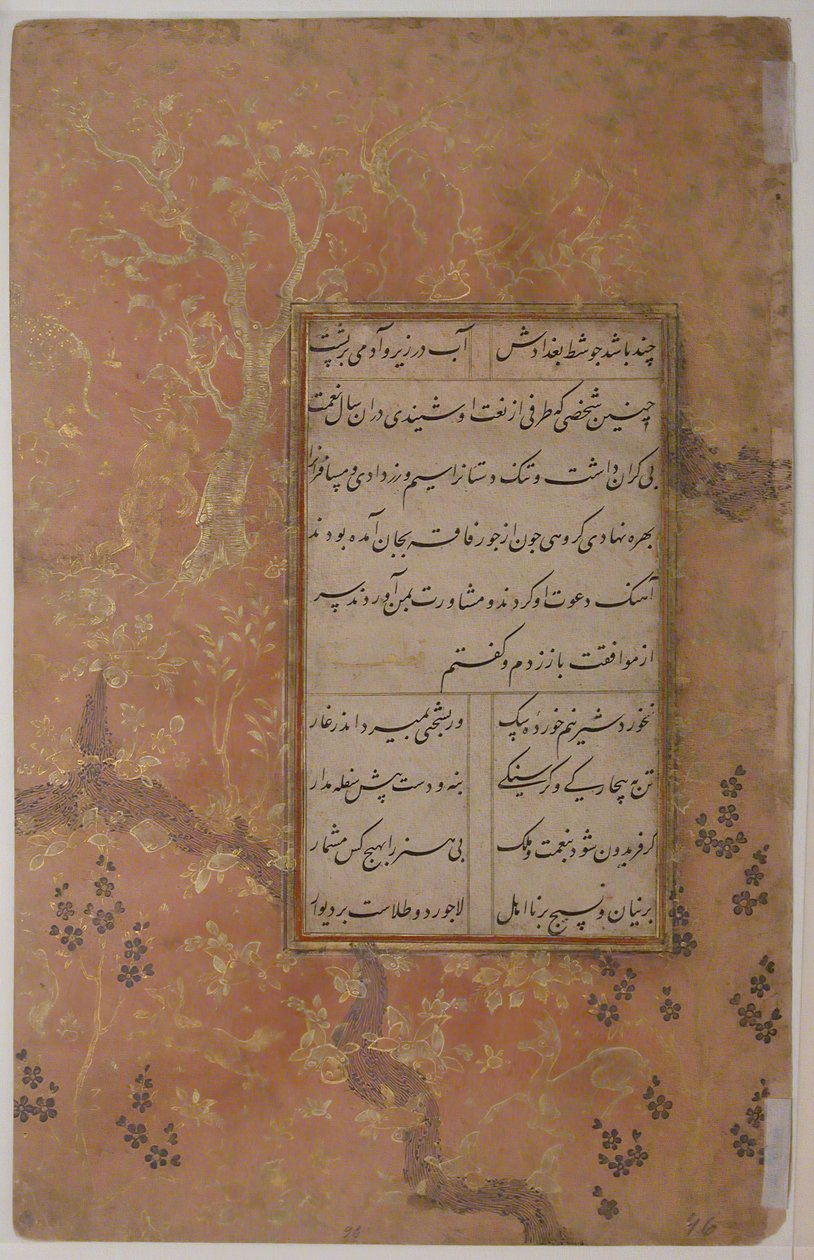 چند باشد جو شط بغدادش آب در زیر و آدمی بر پشت
چنین شخصی که طرفی از نعت او شنیدی در ان سال نعمت
بی کران داشت و تنک دستانرا سیم و زر دادی و مسافرانرا
بهره نهادی کروهی جون از جور فاقه بجان آمده بودند
آهنک دعوت او کردند و مشاورت بمن آوردند سر
از موافقت باز زدم و کفتم
نخورد شیر نیم خورده سک ور بسختی بمیرد اندر غار
تن به بیچارکی و کرسنکی بنه و دست پیش سفله مدار
کر فریدون شود بنعمت و ملک بی هنر را بهیچ کس مشمار
برنیان و نسیج بر نااهل لاجورد و طلاست بر دیوار